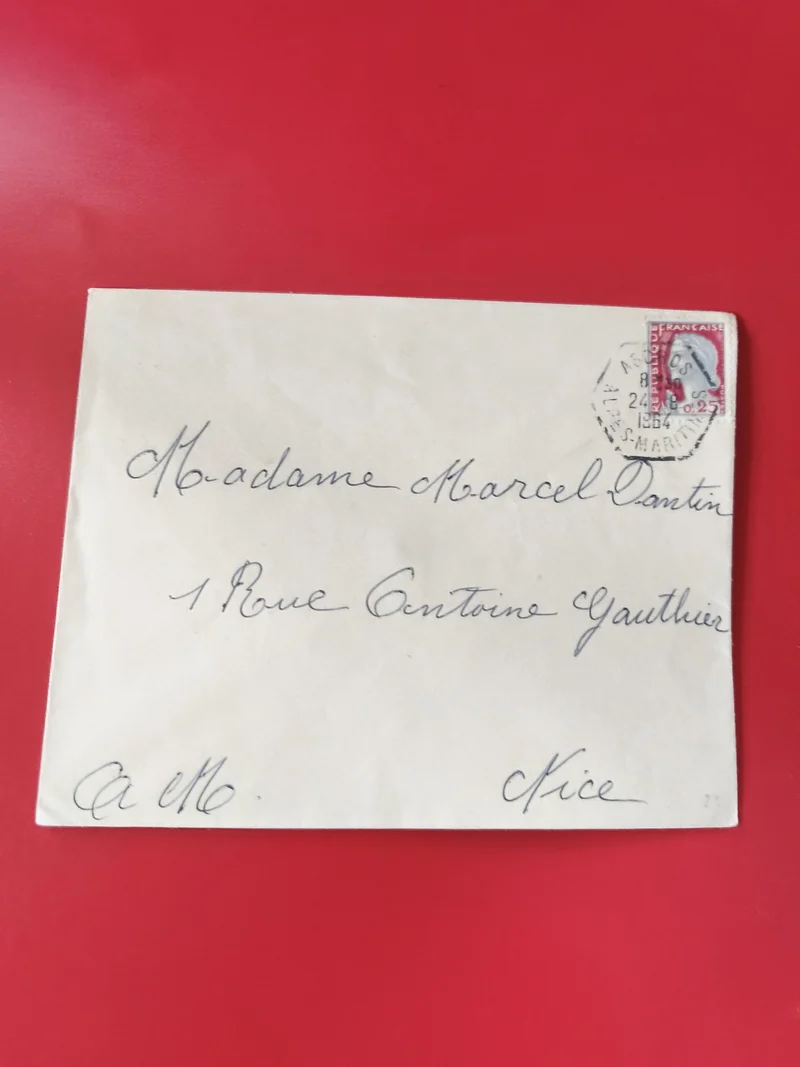 REPUBLIQUE FRANÇAISE
0,25
24-8
1964
ALPES-MARITIMES
Madame Marcel Dantin
1 Rue Antoine Gauthier
A M. Nice